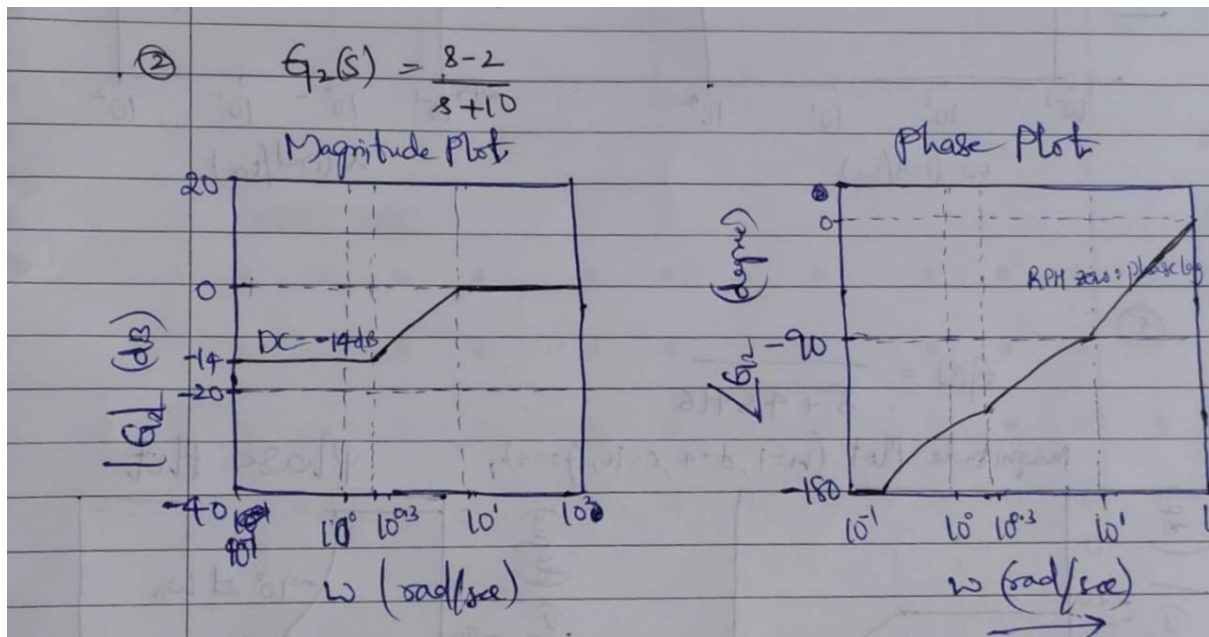 ② G₂(s) = s-2
s+10
Magnitude Plot
20
0
DC = -14dB
-14
-20
-40
|G₂| (dB)
10⁻¹ 10⁰ 10^0.3 10¹ 10²
ω (rad/sec)
Phase Plot
0
RPH zero: phase lag
-90
-180
∠G₂ (degree)
10⁻¹ 10⁰ 10^0.3 10¹
ω (rad/sec)